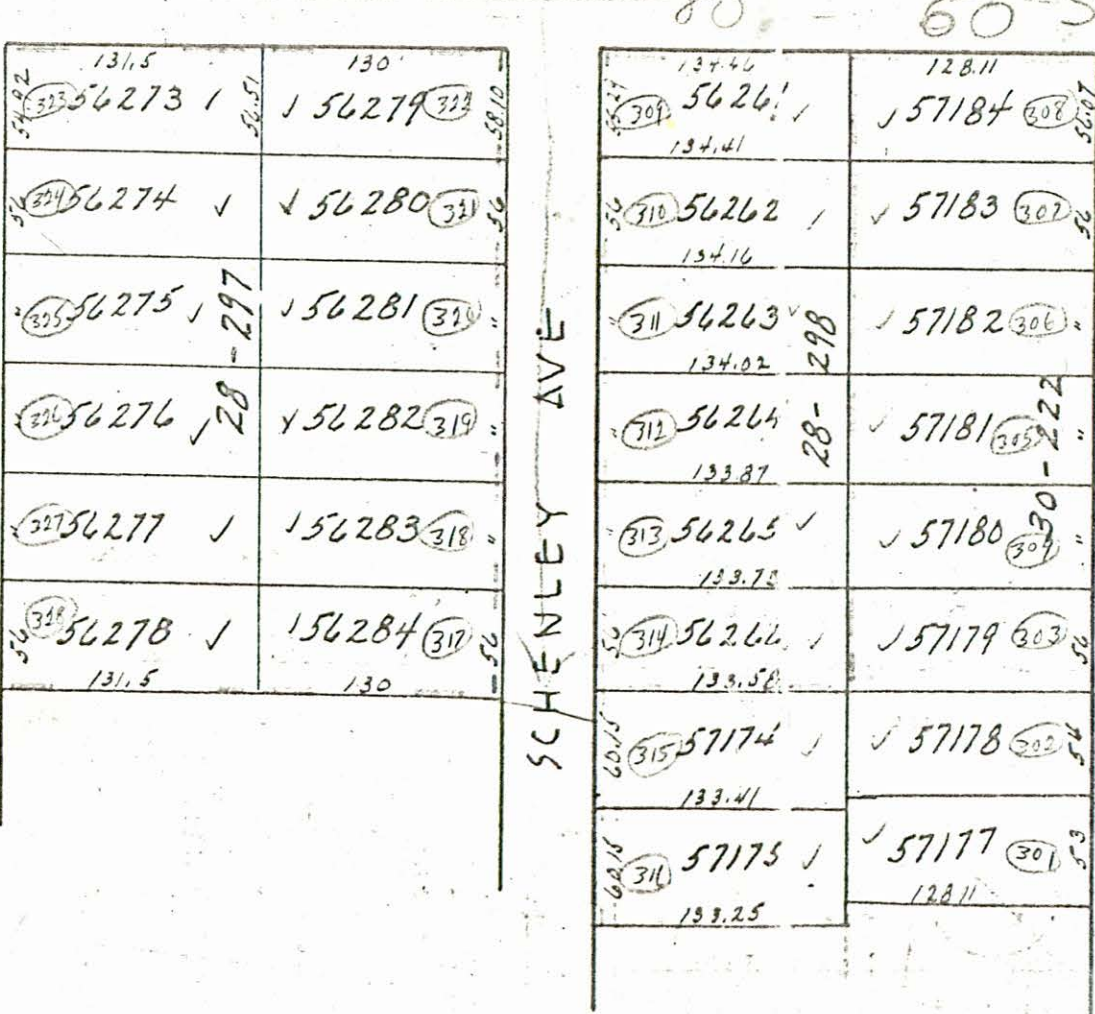 80 60
131.5 130'
54.02 323 56273 56.51 ✓ 56279 322 58.10
56 324 56274 ✓ ✓ 56280 321 56
" 325 56275 ✓ ✓ 56281 320 "
" 326 56276 ✓ ✓ 56282 319 "
" 327 56277 ✓ ✓ 56283 318 "
56 328 56278 ✓ 56284 317 56
131.5 130
28-297
SCHENLEY AVE
134.46 128.11
309 56261 ✓ ✓ 57184 308 56.07
134.41
56 310 56262 ✓ 57183 307 56
134.16
" 311 56263 ✓ ✓ 57182 306 "
134.02
" 312 56264 ✓ 57181 305 "
133.87
" 313 56265 ✓ ✓ 57180 304 "
133.72
314 56266 ✓ ✓ 57179 303 56
133.58
60.15 315 57174 ✓ ✓ 57178 302 56
133.41
60.15 316 57175 ✓ ✓ 57177 301 53
133.25 128.11
28-298
30-222